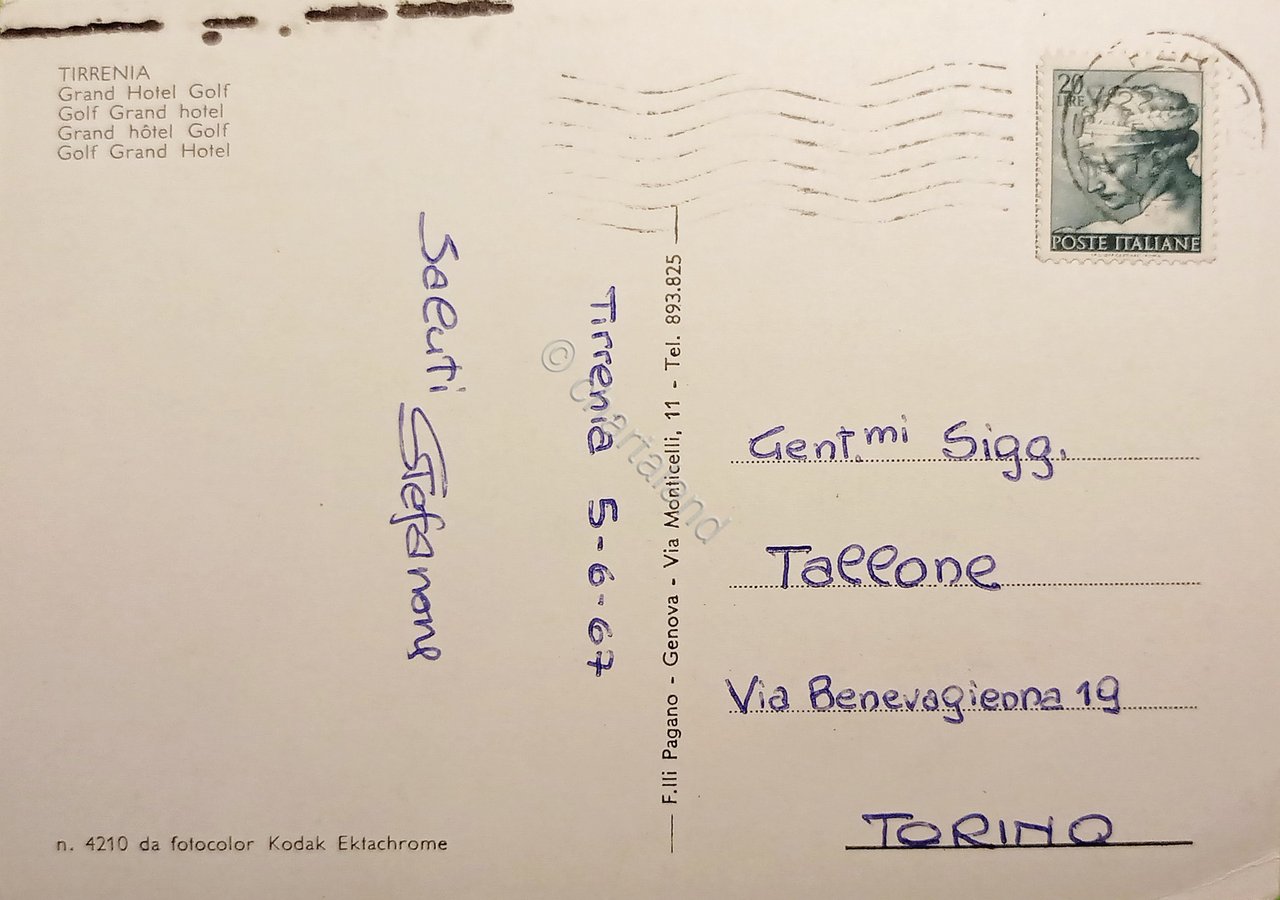 TIRRENIA
Grand Hotel Golf
Golf Grand hotel
Grand hôtel Golf
Golf Grand Hotel
20
LIRE
POSTE ITALIANE
Saluti
Stefano
Tirrenia 5-6-67
F.lli Pagano - Genova - Via Monticelli, 11 - Tel. 893.825
© Chartaland
Gent.mi Sigg.
Tallone
Via Benevagienna 19
TORINO
n. 4210 da fotocolor Kodak Ektachrome